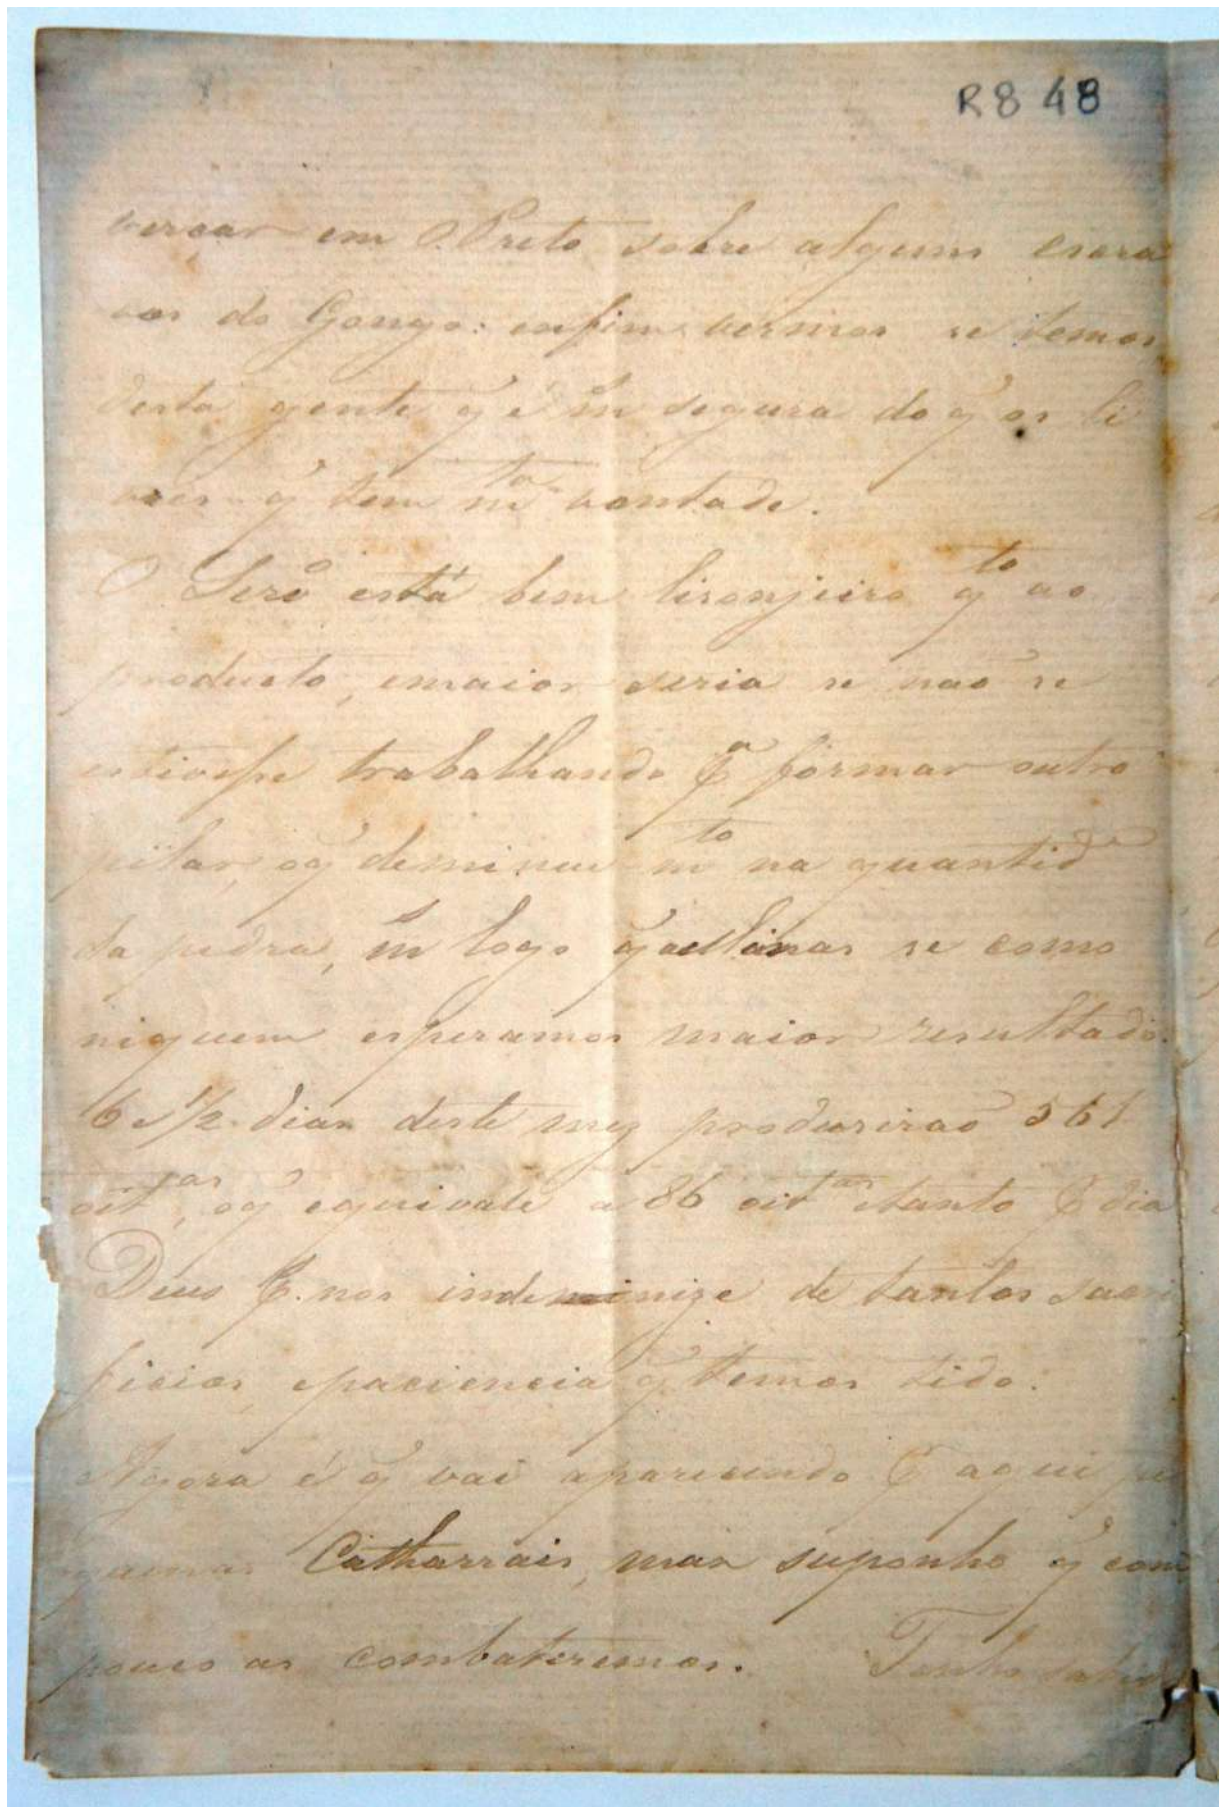 R8 48
versar em O. Preto sobre alguns escra
vos do Gongo: enfim vermos se temos
desta gente q̃ é m̃ segura do q̃ os li
vres q̃ tem m^to vontade.
O Serṽ está bem lisonjeiro q^to ao
producto, emaior seria se naõ se
estivesse trabalhando p^a formar outro
pilar, oq̃ deminue m^to na quantid^e
da pedra, m̃ logo q̃ as se como
niquem esperamos maior resultado.
6 e 1/2 dias deste mez produsiraõ 561
oit^as, oq̃ equivale a 86 oit^as etanto p dia
Deus p. nos indeminize de tantos sacri
ficios, epaciencia q̃ temos tido.
Agora é q̃ vai aparecendo p aqui pe
quenas Catharrais, mas suponho q̃ com
pouco as combateremos. Tenho